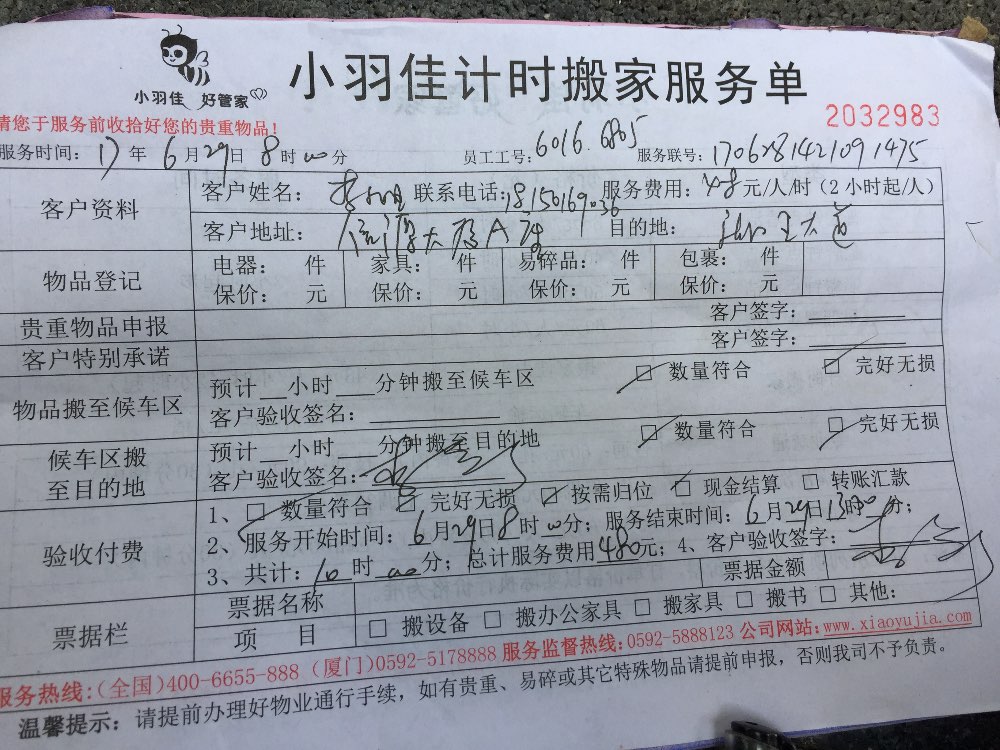 小羽佳 好管家
小羽佳计时搬家服务单
2032983
请您于服务前收拾好您的贵重物品!
服务时间: 17 年 6 月 29 日 8 时 00 分 员工工号: 6016.6805 服务联号: 1706281421091475
客户资料
客户姓名: 联系电话: 18150169036 服务费用: 48 元/人/时(2小时起/人)
客户地址: 大厦A座 目的地: 大道
物品登记
电器: 件 家具: 件 易碎品: 件 包裹: 件
保价: 元 保价: 元 保价: 元 保价: 元
贵重物品申报 客户签字:
客户特别承诺 客户签字:
物品搬至候车区
预计 小时 分钟搬至候车区 □ 数量符合 □ 完好无损
客户验收签名:
候车区搬至目的地
预计 小时 分钟搬至目的地 □ 数量符合 □ 完好无损
客户验收签名:
验收付费
1、□ 数量符合 □ 完好无损 □ 按需归位 □ 现金结算 □ 转账汇款
2、服务开始时间: 6 月 29 日 8 时 00 分; 服务结束时间: 6 月 29 日 13 时 00 分;
3、共计: 10 时 00 分; 总计服务费用 480 元; 4、客户验收签字:
票据栏
票据名称 票据金额
项 目 □ 搬设备 □ 搬办公家具 □ 搬家具 □ 搬书 □ 其他:
服务热线:(全国)400-6655-888 (厦门)0592-5178888 服务监督热线:0592-5888123 公司网站:www.xiaoyujia.com
温馨提示: 请提前办理好物业通行手续,如有贵重、易碎或其它特殊物品请提前申报,否则我司不予负责。